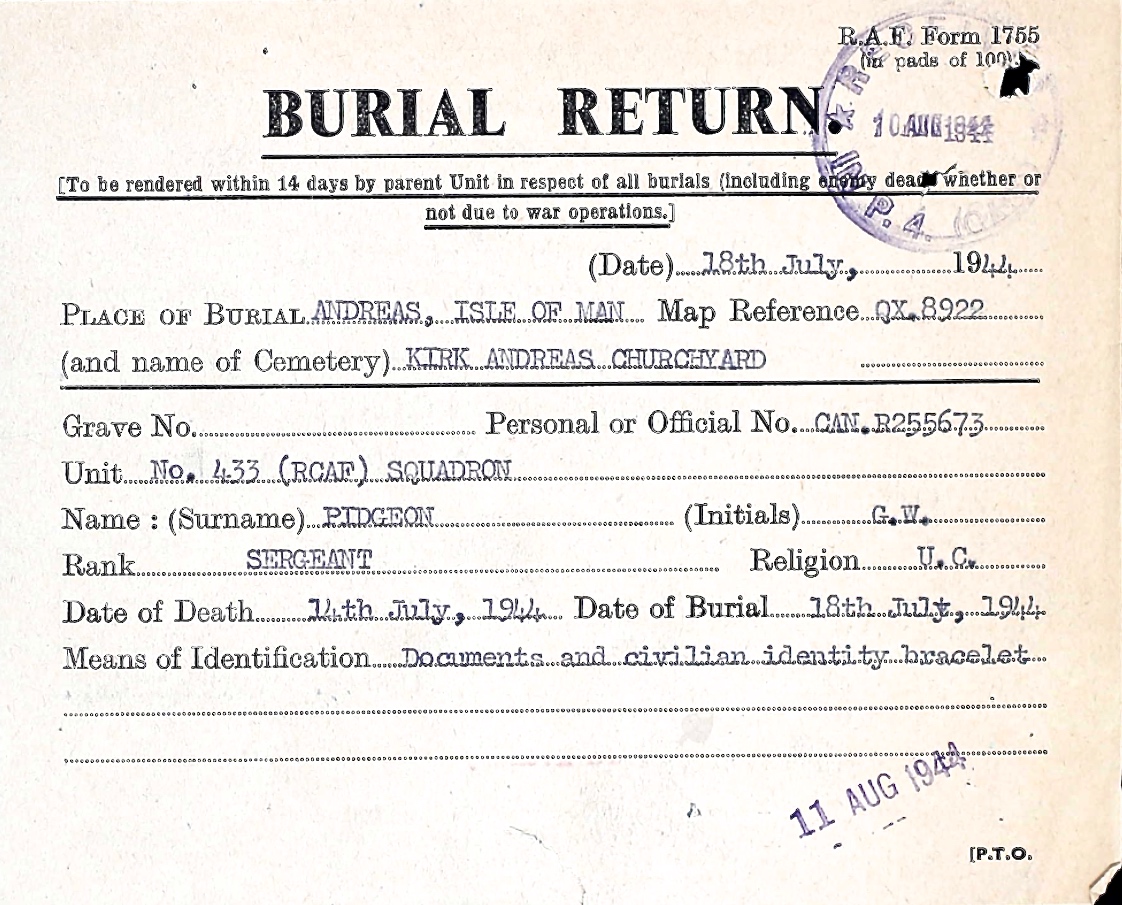 R.A.F. Form 1755
(in pads of 100)
BURIAL RETURN.
10 AUG 1944
[To be rendered within 14 days by parent Unit in respect of all burials (including enemy dead) whether or
not due to war operations.]
P. 4.
(Date) 18th July, 1944
PLACE OF BURIAL ANDREAS, ISLE OF MAN Map Reference QX.8922
(and name of Cemetery) KIRK ANDREAS CHURCHYARD
Grave No. Personal or Official No. CAN.R255673
Unit No. 433 (RCAF) SQUADRON
Name : (Surname) PIDGEON (Initials) G.W.
Rank SERGEANT Religion U.C.
Date of Death 14th July, 1944 Date of Burial 18th July, 1944
Means of Identification Documents and civilian identity bracelet
11 AUG 1944
[P.T.O.